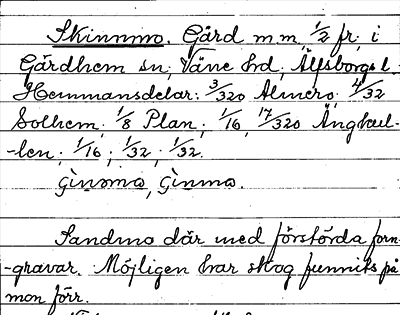 Skinnmo. Gård m.m. 1/2 fr. i
Gärdhem sn, Väne hd, Älfsborgs l.
Hemmansdelar: 3/320 Almero; 4/32
Solhem; 1/8 Plan; 1/16, 17/320 Änghul-
-len; 1/16; 1/32; 1/32.
Sandmo där med förstörda forn-
-gravar. Möjligen har skog funnits på
mon förr.